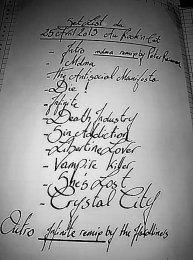 Set List du
25 Avril 2013 Au Rock'n'Eat
- Intro mdma remix by Peter
- Mdma
- The Antisocial Manifesto
- Die !
- Infinite
- Death Industry
- Sin Addiction
- Libertine Lover
- Vampire Killer
- She's Lost
- Crystal City
Outro Infinite remix by the